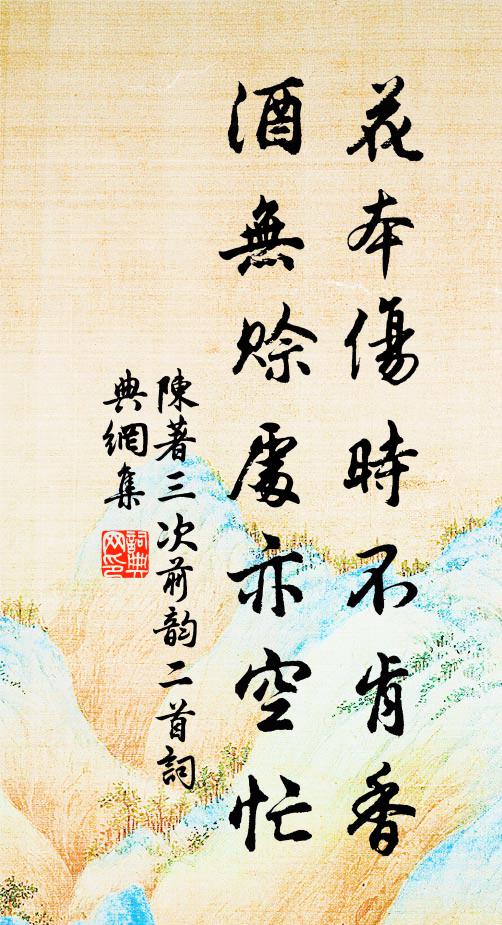 花本傷時不肯香
酒無賒處亦空忙
陳著三次前韵二首詞
典網集
詞典網印